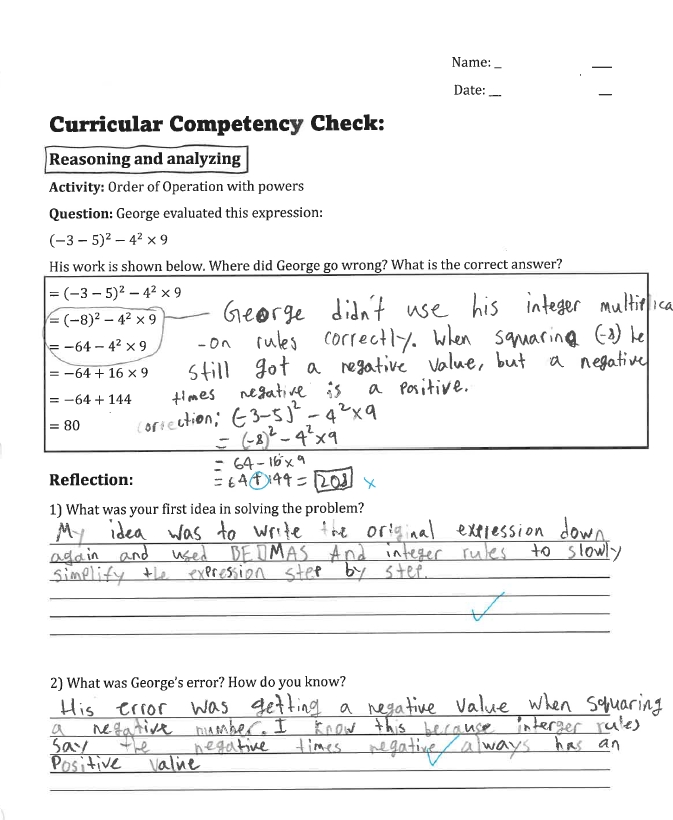 Name: _ __
Date: __ __
Curricular Competency Check:
Reasoning and analyzing
Activity: Order of Operation with powers
Question: George evaluated this expression:
(−3 − 5)² − 4² × 9
His work is shown below. Where did George go wrong? What is the correct answer?
= (−3 − 5)² − 4² × 9
= (−8)² − 4² × 9
= −64 − 4² × 9
= −64 + 16 × 9
= −64 + 144
= 80
George didn't use his integer multiplica
-on rules correctly. When squaring (-8) he
still got a negative value, but a negative
times negative is a positive.
correction: (-3-5)² - 4²x9
= (-8)² - 4²x9
= 64 - 16x9
= 64 + 144 = 208 x
Reflection:
1) What was your first idea in solving the problem?
My idea was to write the original expression down
again and used BEDMAS And integer rules to slowly
simplify the expression step by step.
✓
2) What was George's error? How do you know?
His error was getting a negative value when squaring
a negative number. I know this because interger rules
say the negative times negative always has an
Positive value
✓